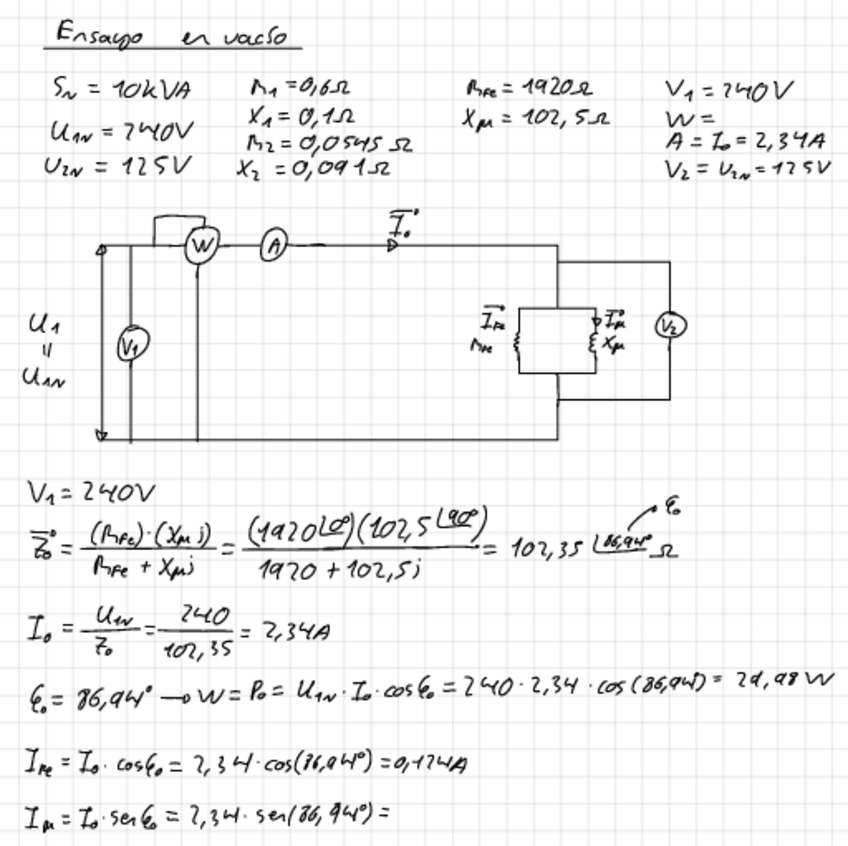 Ensayo en vacío
S_N = 10kVA
U_1N = 240V
U_2N = 125V
R_1 = 0,6Ω
X_1 = 0,1Ω
R_2 = 0,0545 Ω
X_2 = 0,091Ω
R_Fe = 1920Ω
X_μ = 102,5Ω
V_1 = 240V
W =
A = I_0 = 2,34A
V_2 = U_2N = 125V
I_0
W
A
U_1
=
U_1N
V_1
I_Fe
R_Fe
I_μ
X_μ
V_2
V_1 = 240V
Z_0 = (R_Fe)·(X_μ j) / (R_Fe + X_μ j) = (1920∠0°)(102,5∠90°) / (1920 + 102,5j) = 102,35 ∠86,94° Ω
φ_0
I_0 = U_1N / Z_0 = 240 / 102,35 = 2,34A
φ_0 = 86,94° → W = P_0 = U_1N · I_0 · cosφ_0 = 240 · 2,34 · cos(86,94) = 29,98 W
I_Fe = I_0 · cosφ_0 = 2,34 · cos(86,94°) = 0,124A
I_μ = I_0 · senφ_0 = 2,34 · sen(86,94°) =